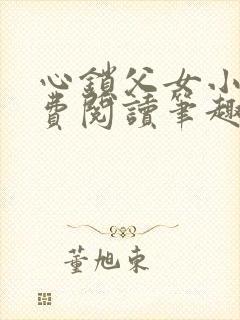 心鎖父女小
費閱讀筆趣
董旭東